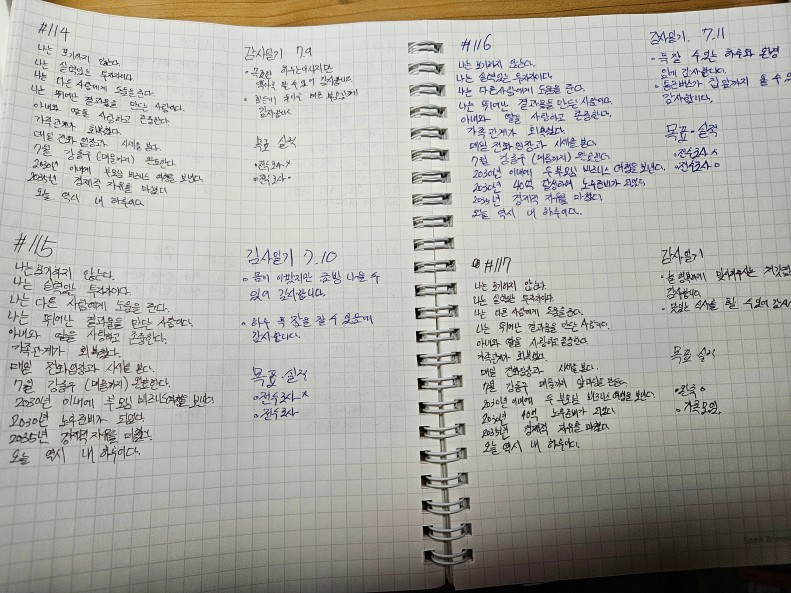 #114
나는 포기하지 않는다.
나는 실력있는 투자자이다.
나는 다른 사람에게 도움을 준다.
나는 뛰어난 결과물을 만드는 사람이다.
아내와 딸을 사랑하고 존중한다.
가족관계가 회복했다.
매일 전화임장과 시세를 본다.
7월 강흥구 (마음까지) 완료한다.
2030년 이내에 부모님 비즈니스 여행을 보낸다.
2035년 경제적 자유를 이뤘다.
오늘 역시 내 하루이다.
감사일기 7.9
감사합니다
목표 실적
·전수조사 ×
·전수조사 ○
#115
나는 포기하지 않는다.
나는 실력있는 투자자이다.
나는 다른 사람에게 도움을 준다.
나는 뛰어난 결과물을 만드는 사람이다.
아내와 딸을 사랑하고 존중한다.
가족관계가 회복했다.
매일 전화임장과 시세를 본다.
7월 (마음까지) 완료한다.
2030년 이내에 두 부모님 비즈니스 여행을 보낸다.
2030년 노후준비가 되었다.
2035년 경제적 자유를 이뤘다.
오늘 역시 내 하루이다.
감사일기 7.10
몸이 아팠지만 금방 나을 수
있어 감사합니다.
하루 푹 잠을 잘 수 있음에
감사합니다.
목표·실적
·전수조사 ×
·전수조사
#116
나는 포기하지 않는다.
나는 실력있는 투자자이다.
나는 다른사람에게 도움을 준다.
나는 뛰어난 결과물을 만드는 사람이다.
아내와 딸을 사랑하고 존중한다.
가족관계가 회복했다.
매일 전화임장과 시세를 본다.
7월 (마음까지) 완료한다.
2030년 이내에 두 부모님 비즈니스 여행을 보낸다.
2030년 40억 달성하여 노후준비가 되었다.
2035년 경제적 자유를 이뤘다.
오늘 역시 내 하루이다.
감사일기. 7.11
푹 잘 수 있는 하루와 환경
감사합니다.
집 앞까지 올 수
감사합니다.
목표·실적
·전수조사 ×
·전수조사 ○
#117
나는 포기하지 않는다.
나는 실력있는 투자자이다.
나는 다른 사람에게 도움을 준다.
나는 뛰어난 결과물을 만드는 사람이다.
아내와 딸을 사랑하고 존중한다.
가족관계가 회복했다.
매일 전화임장과 시세를 본다.
7월 마음까지
2030년 이내에 두 부모님 비즈니스 여행을 보낸다.
2030년 40억 노후준비가 되었다.
2035년 경제적 자유를 이뤘다.
오늘 역시 내 하루이다.
감사일기
감사합니다
맛있는 식사를 할 수 있어
목표 실적
·가족모임